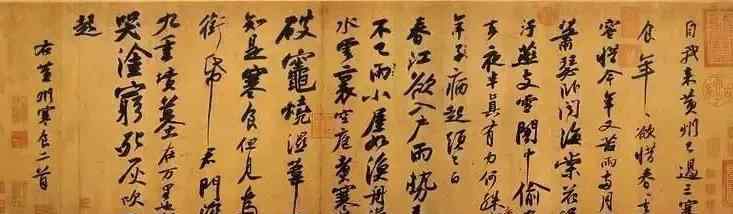 自我來黃州已過三寒
食年〻欲惜春〻去
容惜今年又苦雨兩月
蕭瑟卧聞海棠花
汙燕支雪闇中偷
去夜半真有力何殊
年子病起頭已白
春江欲入户雨勢
不已雨小屋如漁舟
水雲裏空庖煮寒
破竈燒濕葦
知是寒食但見烏
銜帋君門深
九重墳墓在万里
哭塗窮死灰吹
起
右黃州寒食二首